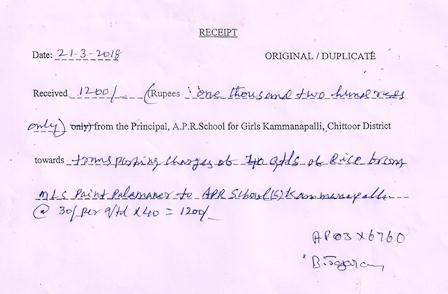 RECEIPT
Date: 21-3-2018 ORIGINAL / DUPLICATE
Received 1200/- (Rupees one thousand two hundred
only) only) from the Principal, A.P.R.School for Girls Kammanapalli, Chittoor District
towards transporting charges of 40 qtds of Rice from
MLS Point Palamaner to APR School(G) Kammanapalli
@ 30/ per qtd x 40 = 1200/-
AP03 X6760